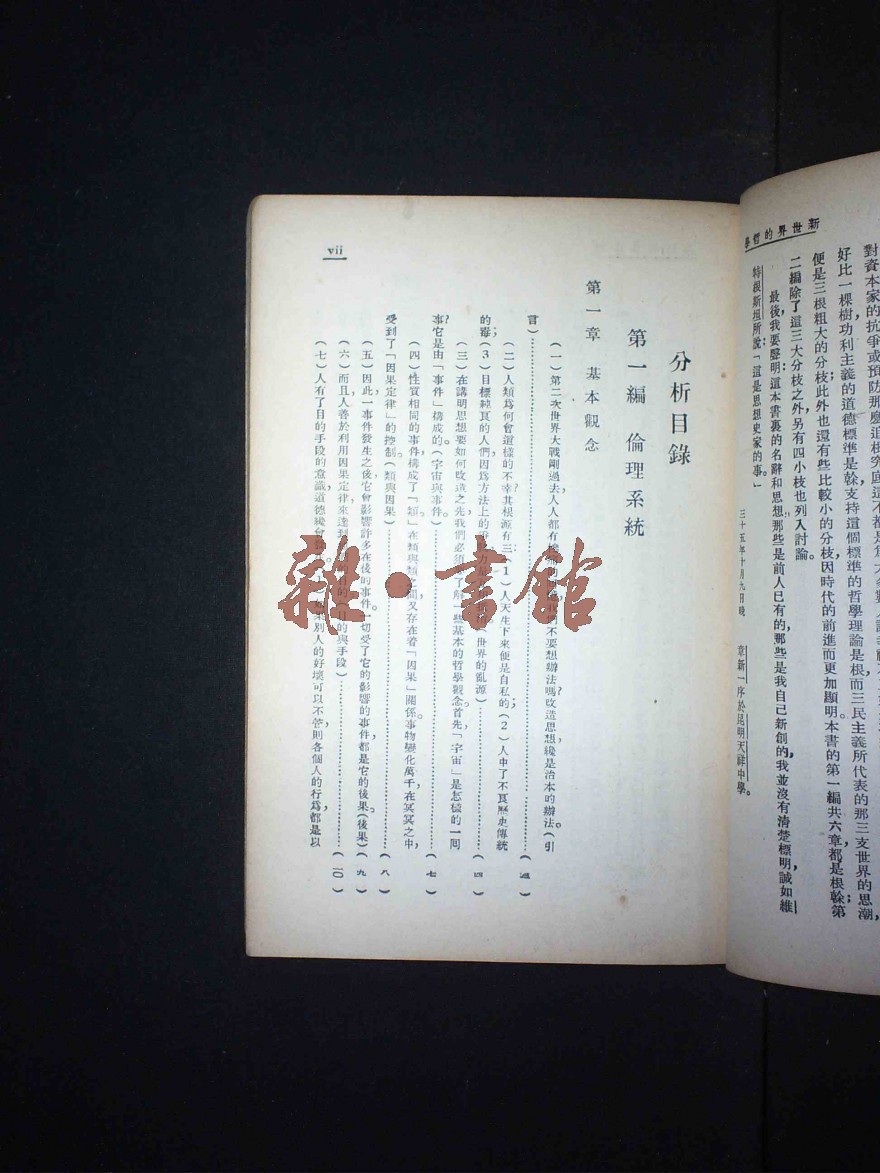 新世界的哲學
對資本家的抗爭或預防那麼追根究底這不都是爲大多數人謀幸福
好比一棵樹功利主義的道德標準是榦支持這個標準的哲學理論是根而三民主義所代表的那三支世界的思潮,
便是三根粗大的分枝此外也還有些比較小的分枝因時代的前進而更加顯明本書的第一編共六章都是根榦第
二編除了這三大分枝之外另有四小枝也列入討論。
最後,我要聲明這本書裏的名辭和思想那些是前人已有的,那些是我自己新創的,我並沒有清楚標明,誠如維
特根斯坦所說:「這是思想史家的事。」
三十五年十月九日晚 章新一序於昆明天祥中學。
分析目錄
第一編 倫理系統
第一章 基本觀念
(一)第二次世界大戰剛過去人人都有 我們不要想辦法嗎?改造思想纔是治本的辦法(引
言)………(一)
(二)人類爲何會這樣的不幸其根源有三:(1)人天生下來便是自私的;(2)人中了不良歷史傳統
的毒;(3)目標純良的人們因爲方法上的 力 (世界的亂源)………(四)
(三)在講明思想要如何改造之先我們必須 了解一些基本的哲學觀念。首先,「宇宙」是怎樣的一回
事?它是由「事件」構成的。(宇宙與事件)………(七)
(四)性質相同的事件,構成了「類」在類與類之間又存在着「因果」關係事物變化萬千,在冥冥之中,
受到了「因果定律」的控制。(類與因果)………(八)
(五)因此,一事件發生之後,它會影響許多在後的事件。一切受了它的影響的事件都是它的後果。(後果)(九)
(六)而且,人善於利用因果定律,來達到 的目的。(目的與手段)………(一〇)
(七)人有了目的手段的意識,道德纔會 如果別人的好壞可以不管,則各個人的行爲,都是以
vii
雜·書館